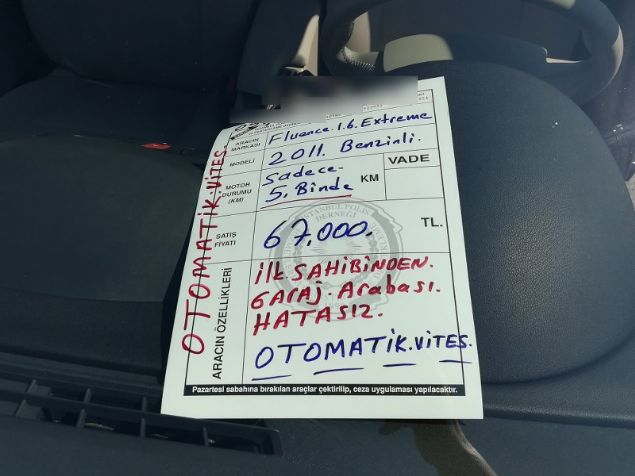 OTOMATİK.VİTES
ARACIN MARKASI Fluence.1.6.Extreme
MODELİ 2011. Benzinli.
MOTOR DURUMU (KM) Sadece 5.Binde KM VADE
SATIŞ FİYATI 67,000. TL.
ARACIN ÖZELLİKLERİ
İLK SAHİBİNDEN.
GARAJ Arabası.
HATASIZ.
OTOMATİK.VİTES.
İSTANBUL POLİS
DERNEĞİ
Pazartesi sabahına bırakılan araçlar çektirilip, ceza uygulaması yapılacaktır.